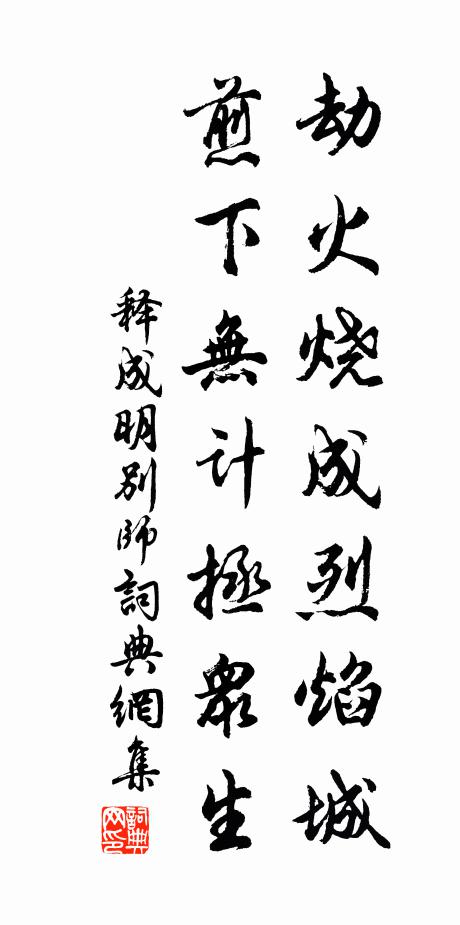 劫火烧成烈焰城
煎下無计拯衆生
释成明别师詞典網集
詞典
网印